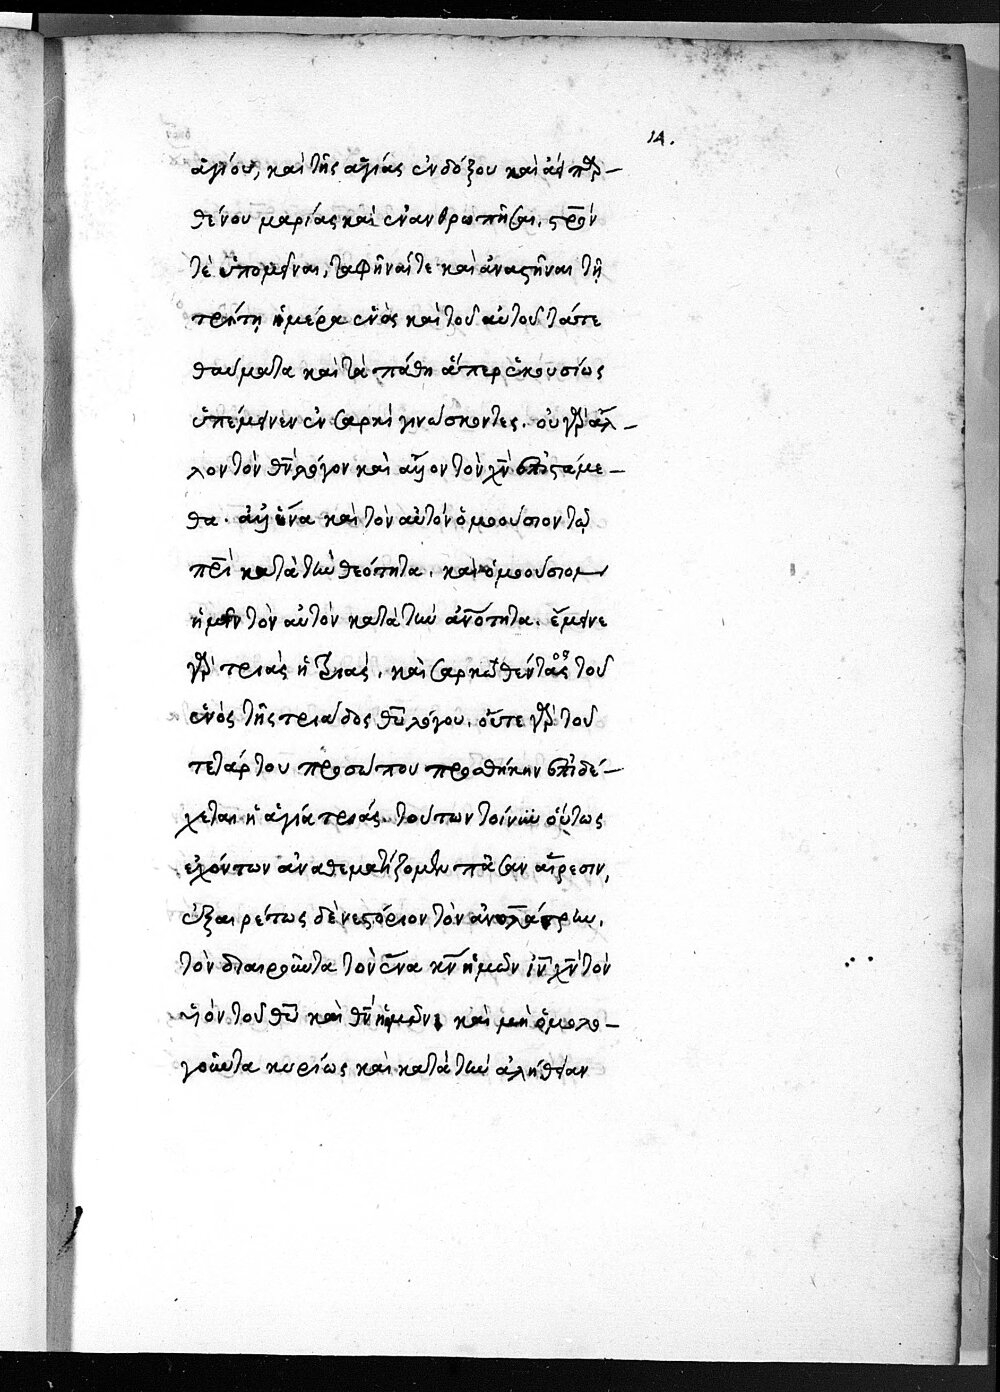 14.
ἁγίου, καὶ τῆς ἁγίας ἐνδόξου καὶ ἀειπαρ–
θένου μαρίας καὶ ἐνανθρωπῆσαι, στρόν
τὲ ὑπομεῖναι, ταφῆναίτε καὶ ἀναστῆναι τῆ
τρίτη ἡμέρα ἑνὸς καὶ τοῦ αὐτοῦ τάτε
θαύματα καὶ τὰ πάθη ἅπερ ἑκουσίως
ὑπέμεινεν ἐν σαρκὶ γινώσκοντες. οὐ γὰρ ἄλ–
λον τὸν θν λόγον καὶ ἄλλον τὸν χν ἐπιστάμε–
θα. ἀλλ' ἕνα καὶ τὸν αὐτὸν ὁμοούσιον τῶ
πρὶ κατὰ τὴν θεότητα. καὶ ὁμοούσιον
ἡμῖν τὸν αὐτὸν κατὰ τὴν ἀνότητα. ἔμεινε
γὰρ τριὰς ἡ τριάς, καὶ σαρκωθέντος τοῦ
ἑνὸς τῆς τριάδος θυ λόγου. οὔτε γὰρ τοῦ
τετάρτου προσώπου προσθήκην ἐπιδέ–
χεται ἡ ἁγία τριάς. τούτων τοίνυν οὕτως
ἐχόντων ἀναθεματίζομεν πᾶσαν αἵρεσιν,
ἐξαιρέτως δὲ νεστόριον τὸν ἀνολάτρην.
τὸν διαιροῦντα τὸν ἕνα κν ἡμῶν ιν χν τὸν
υἱὸν τοῦ θυ καὶ θν ἡμῶν, καὶ μὴ ὁμολο–
γοῦντα κυρίως καὶ κατὰ τὴν ἀλήθειαν